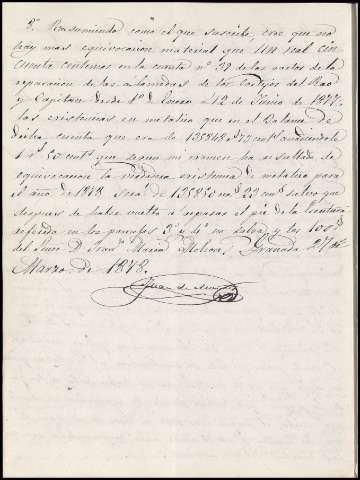 3º Resumiendo como el que suscribe, cree que no
hay mas equivocacion material que un real cin-
cuenta centimos en la cuenta nº 32 de los gastos de la
reparacion de las alamedas de los Cortijos del Rao
y Capitan desde 1º de Enero a 12 de Junio de 1877.
las existencias en metalico que en el Balance de
dicha cuenta que era de 135848 r 73 cmt añadiendole
1 r 50 cmt que segun mi examen ha resultado de
equivocacion la verdadera existencia de metalico para
el año de 1878 sera de 135850 r 23 cmt salvo que
despues de haber vuelto a repasar el pie de la Escritura
referida en los parrafos 3º y 4º
del Señor D. Franco Maria Granada 27 de
Marzo de 1878.
Juan de